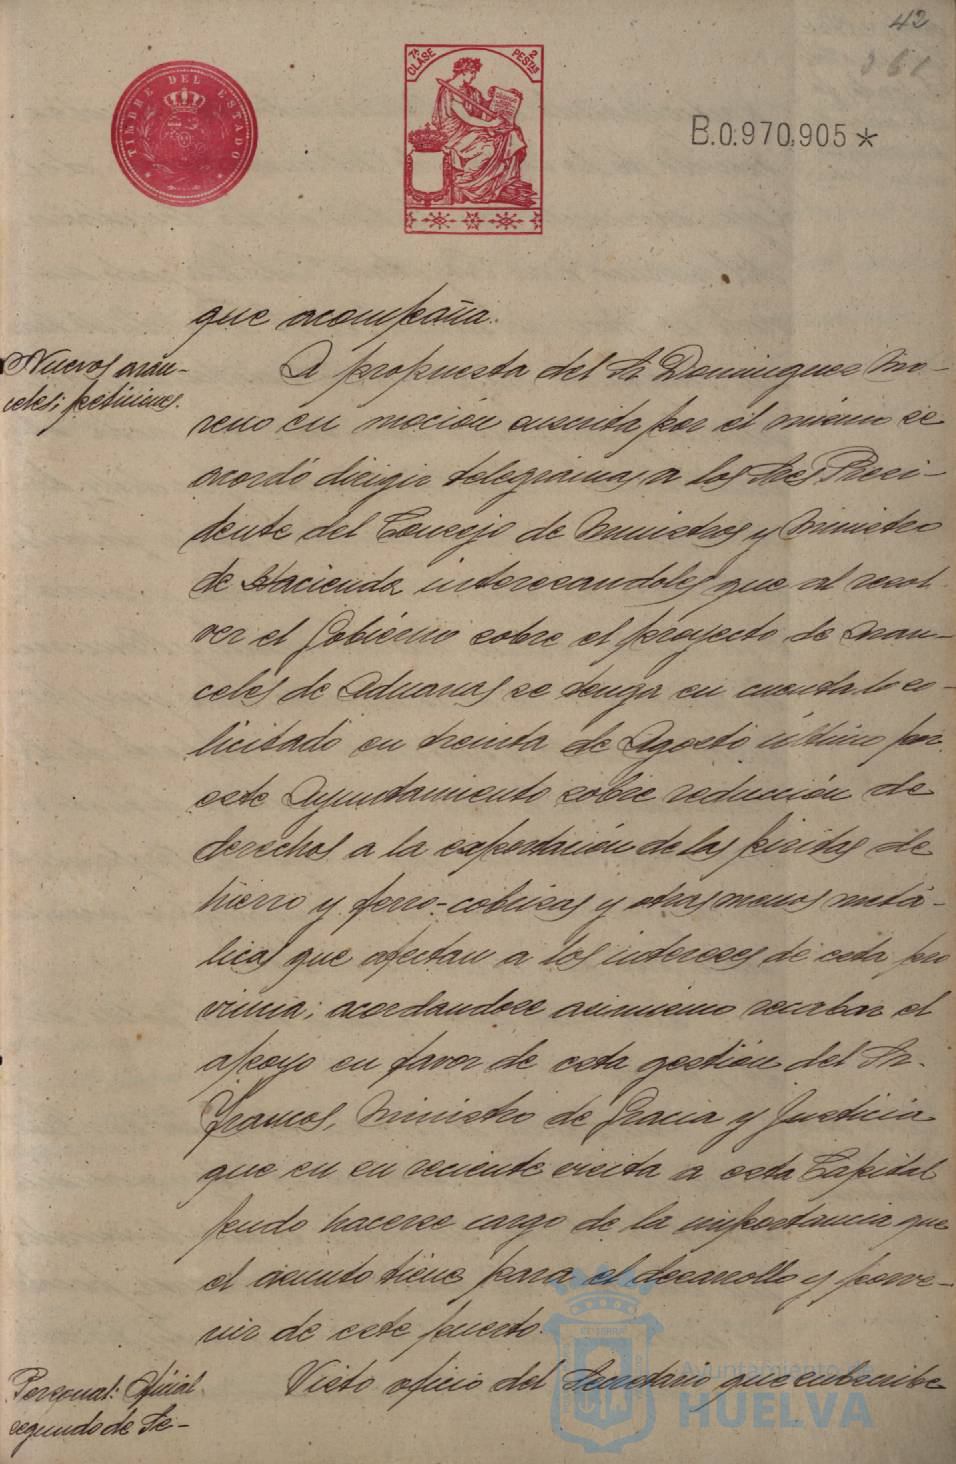 42
361
TIMBRE DEL ESTADO
7ª CLASE
2 PESTAS
B.0.970,905*
que acompaña.
Nuevos aran-
celes; peticiones.
A propuesta del Sr Dominguez Mo-
reno en moción suscrita por el mismo se
acordó dirigir telegramas a los Sres Presi-
dente del Consejo de Ministros y Ministro
de Hacienda interesandoles que al resol-
ver el Gobierno sobre el proyecto de Aran-
celes de Aduanas se tenga en cuenta lo so-
licitado en treinta de Agosto último por
este Ayuntamiento sobre reducción de
derechos a la exportación de las piritas de
hierro y ferro-cobrizas y otras menas metá-
licas que afectan a los intereses de esta pro
vincia; acordandose asimismo recabar el
apoyo en favor de esta gestión del Sr.
Francos, Ministro de Gracia y Justicia
que en su reciente visita a esta Capital
pudo hacerse cargo de la importancia que
el asunto tiene para el desarrollo y porve-
nir de este puerto.
Personal: Oficial
segundo de Se-
Visto oficio del Secretario que subscribe
Ayuntamiento de
HUELVA